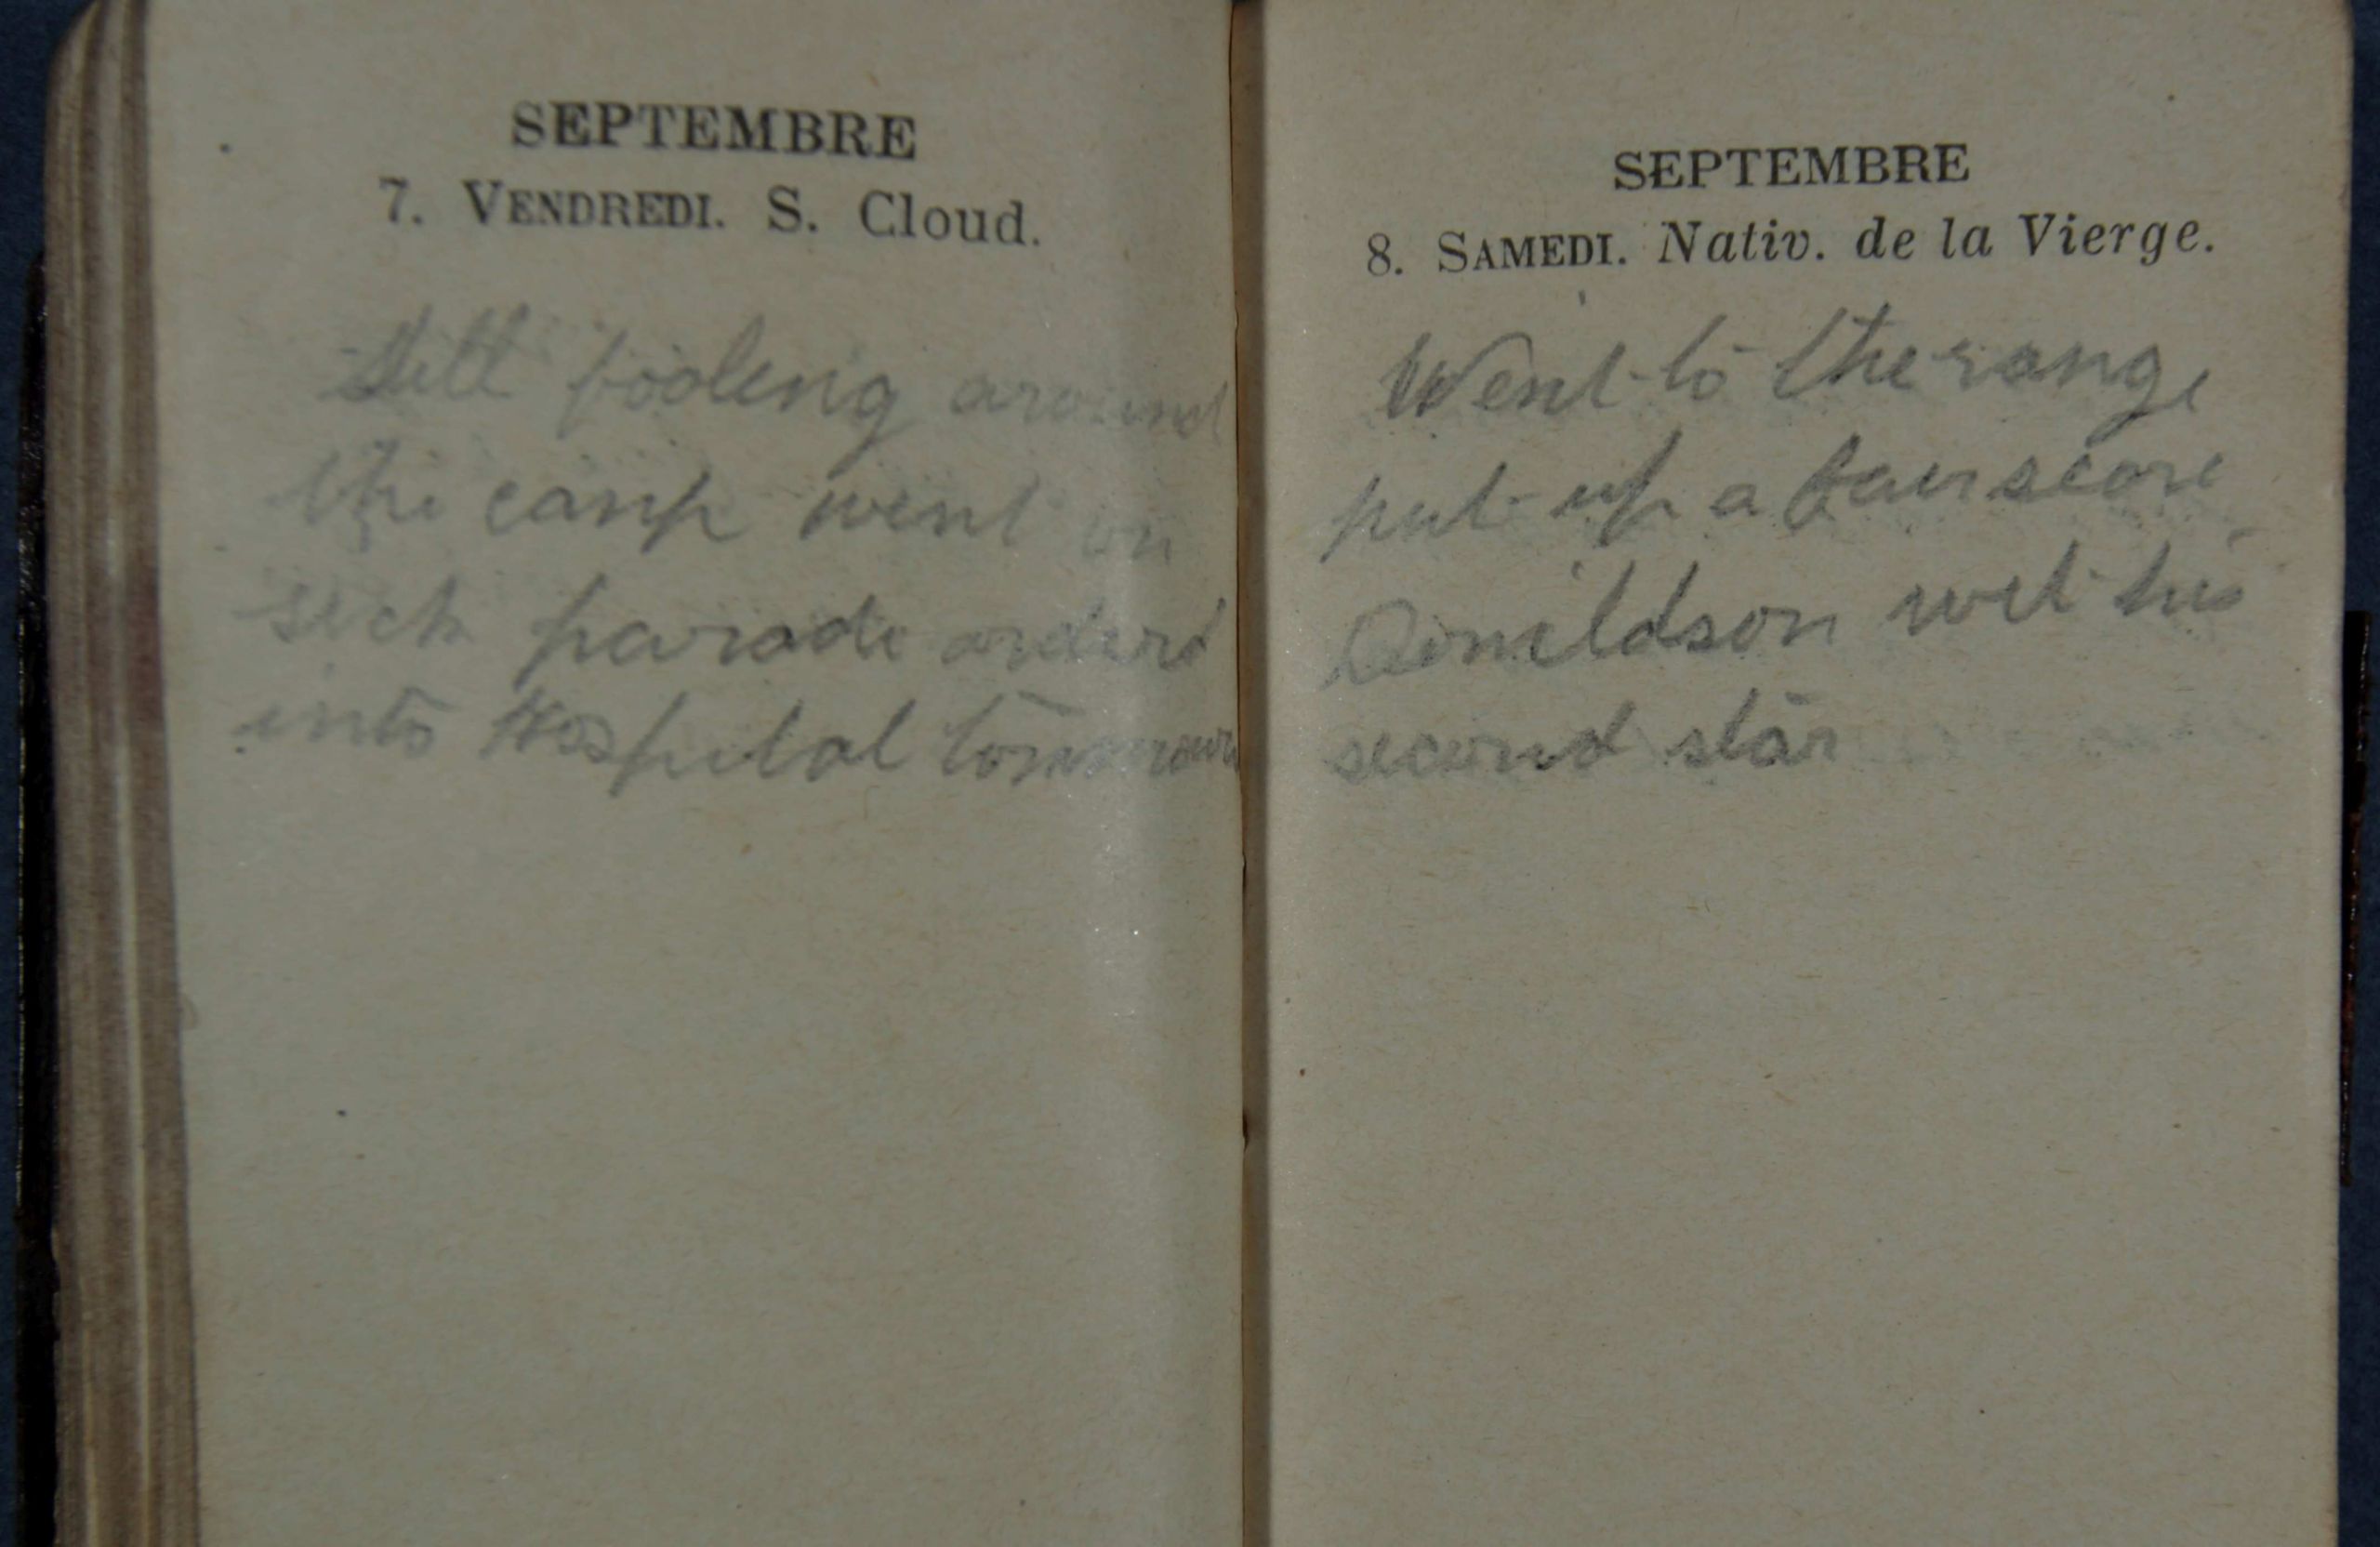 SEPTEMBRE
7. VENDREDI. S. Cloud.
Still fooling around
the camp went on
sick parade orderd
into Hospital tomorrow
SEPTEMBRE
8. SAMEDI. Nativ. de la Vierge.
Went to the range
put up a fair score
Donaldson wet his
second star